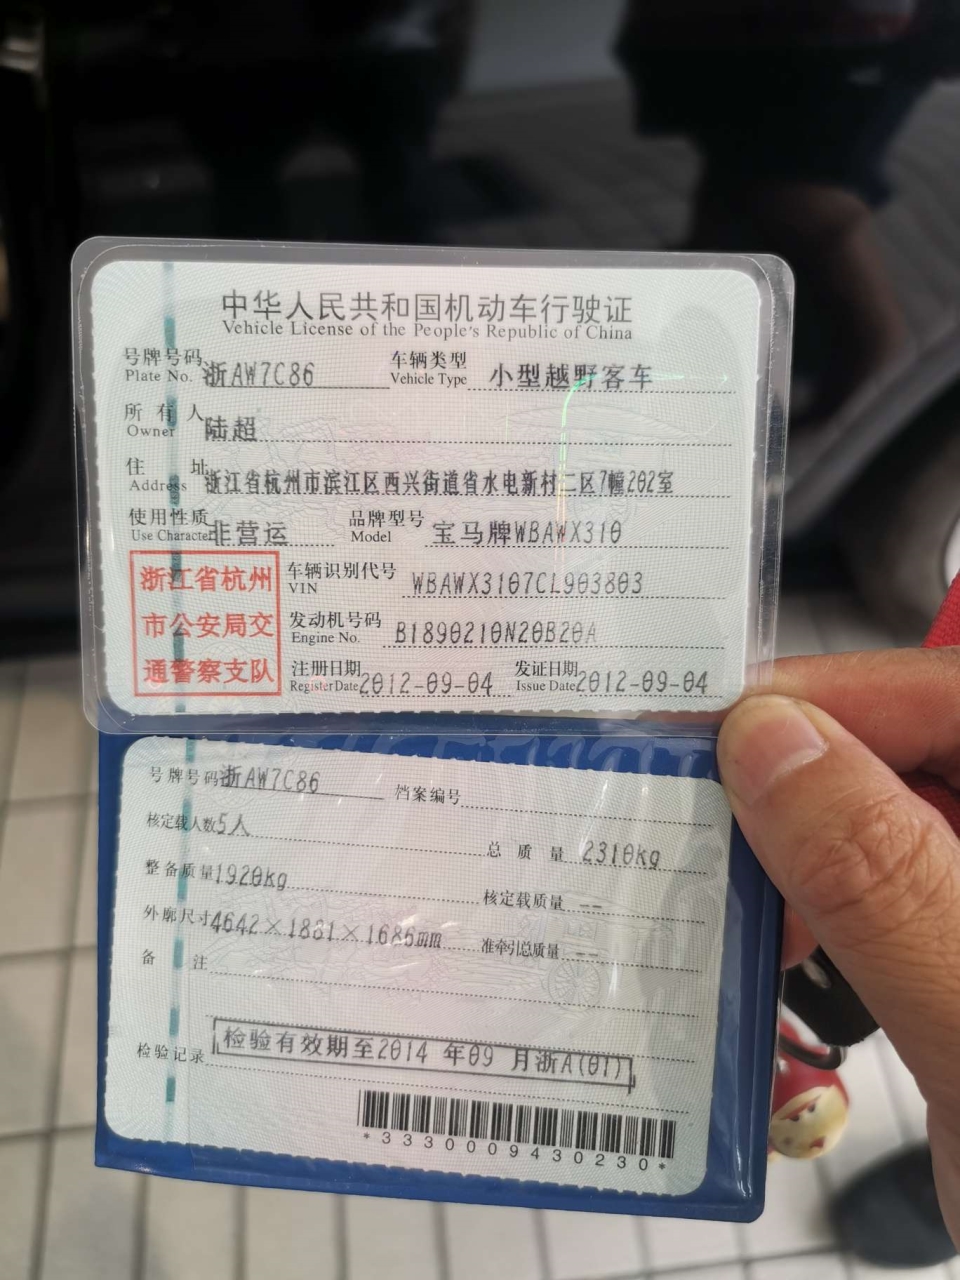 中华人民共和国机动车行驶证
Vehicle License of the People's Republic of China
号牌号码 Plate No. 浙AW7C86 车辆类型 Vehicle Type 小型越野客车
所有人 Owner 陆超
住址 Address 浙江省杭州市滨江区西兴街道省水电新村二区7幢202室
使用性质 Use Character 非营运 品牌型号 Model 宝马牌WBAWX310
浙江省杭州市公安局交通警察支队
车辆识别代号 VIN WBAWX3107CL903803
发动机号码 Engine No. B1890210N20B20A
注册日期 Register Date 2012-09-04 发证日期 Issue Date 2012-09-04
号牌号码 浙AW7C86 档案编号
核定载人数 5人 总质量 2310kg
整备质量 1920kg 核定载质量 --
外廓尺寸 4642×1881×1686mm 准牵引总质量 --
备注
检验记录 检验有效期至2014年09月浙A(01)
*3330009430230*